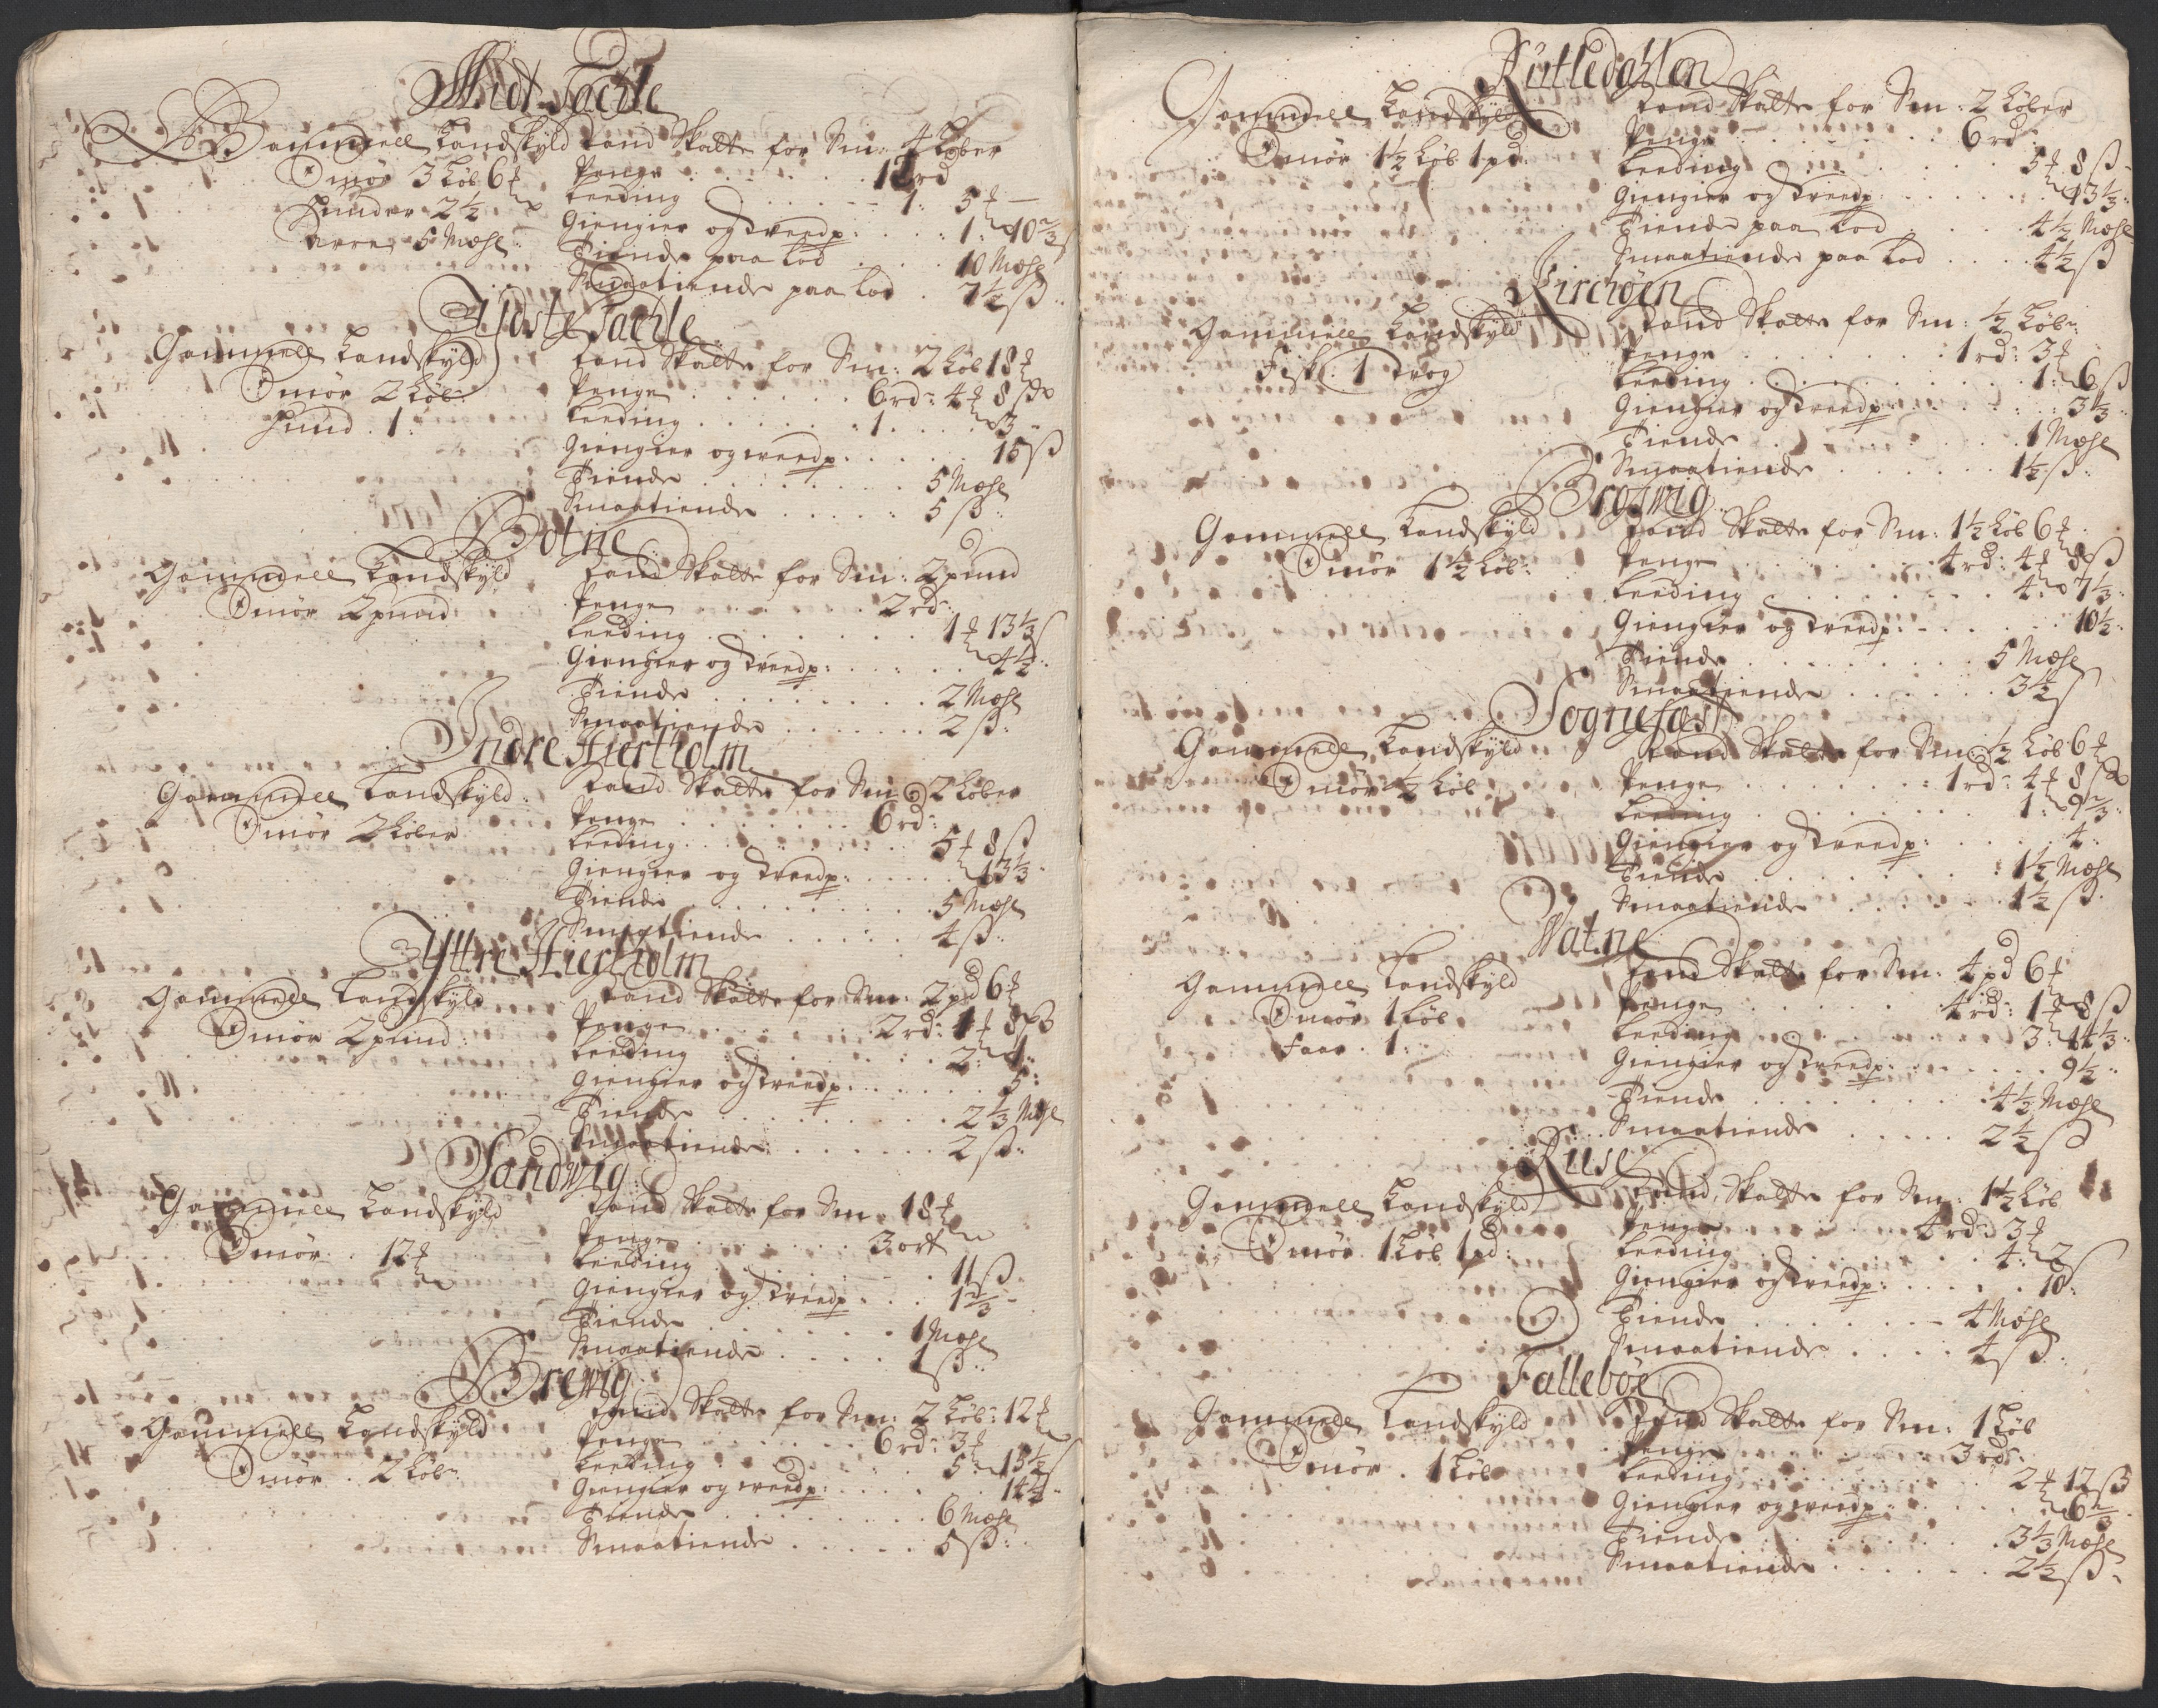 Midt Tachle
Gammell Landskyld
Smør 3 Løb 6 ℔
Huuder 2½
Mæhl
Land Skatte for Sm: 4 Løber
Penge . . . 12 rd
Leeding . . . 1: 5 ℔ —
Giengier og Vreedp: . . . 1: 10⅔
Tiende paa Lod . . . 10 Mæhl
Smaatiende paa Lod . 7½ ß
Ydste Tachle
Gammell Landskyld
Smør 2 Løb
Huud . 1
Land Skatte for Sm: 2 Løb 18 ℔
Penge . . . 6 rd: 4 ℔ 8 ß
Leeding . . . 1 . . . 3
Giengier og Vreedp: . . . 15 ß
Tiende . . . 5 Mæhl
Smaatiende . . . 5 ß
Botne
Gammell Landskyld
Smør 2 pund
Land Skatte for Sm: 2 pund
Penge . . . 2 rd:
Leeding . . . 1 ℔ 13⅓ ß
Giengier og Vreedp: . . . 4½
Tiende . . . 2 Mæhl
Smaatiende . . . 2 ß:
Indre Hiertholm
Gammell Landskyld
Smør 2 Løber
Land Skatte for Sm: 2 Løber
Penge . . . 6 rd:
Leeding . . . 5 ℔ 8 ß
Giengier og Vreedp: . . . 13⅓
Tiende . . . 5 Mæhl
Smaatiende . . . 4 ß:
Yttre Hiertholm
Gammell Landskyld
Smør 2 pund
Land Skatte for Sm: 2 pd 6 ℔
Penge . . . 2 rd: 1 ℔ 8 ß
Leeding . . . 2: 1:
Giengier og Vreedp: . . . 5:
Tiende . . . 2⅓ Mæhl
Smaatiende: . . . 2 ß:
Sandwig
Gammell Landskyld
Smør . . 12 ℔
Land Skatte for Sm: 18 ℔
Penge . . . 3 ort
Leeding . . . 11 ß
Giengier og Vreedp . . . 1⅔
Tiende . . . 1 Mæhl
Smaatiende . . . 1 ß:
Brewig
Gammell Landskyld
Smør . 2 Løb:
Land Skatte for Sm: 2 Løb: 12 ℔
Penge . . . 6 rd: 3 ℔
Leeding . . . 5: 15½ ß
Giengier og Vreedp: . . . 14½
Tiende . . . 6 Mæhl
Smaatiende . . . 5 ß:
Rutledahlen
Gammell Landskyld
Smør 1½ Løb 1 pd:
Land Skatte for Sm: 2 Løber
Penge . . . 6 rd:
Leeding . . . 5 ℔ 8 ß
Giengier og Vreedp: . . . 13⅓:
Tiende paa Lod . . . 4½ Mæhl
Smaatiende paa Lod . . . 4½ ß
Kirchøen
Gammell Landskyld
Fisk . 1 Vog
Land Skatte for Sm: ½ Løb:
Penge . . . 1 rd: 3 ℔
Leeding . . . 1: 6 ß
Giengier og Vreedp . . . 3⅓:
Tiende . . . 1 Mæhl
Smaatiende . . . 1½ ß:
Broswig
Gammell Landskyld
Smør 1½ Løb:
Land Skatte for Sm: 1½ Løb 6 ℔
Penge . . . 4 rd: 4 ℔ 8 ß
Leeding . . . 4: 7⅓:
Giengier og Vreedp: . . . 10½:
Tiende . . . 5 Mæhl
Smaatiende . . . 3½ ß
Sognefæst
Gammell Landskyld
Smør ½ Løb
Land Skatte for Sm: ½ Løb 6 ℔
Penge . . . 1 rd: 4 ℔ 8 ß
Leeding . . . 1: 9⅔:
Giengier og Vreedp: . . . 4:
Tiende . . . 1½ Mæhl
Smaatiende . . . 1½ ß:
Watne
Gammell Landskyld
Smør 1 Løb
Faar . 1:
Land Skatte for Sm: 4 pd 6 ℔
Penge . . . 4 rd: 1 ℔ 8 ß
Leeding . . . 3: 14⅓:
Giengier og Vreedp: . . . 9½:
Tiende . . . 4½ Mæhl
Smaatiende . . . 2½ ß
Riise
Gammell Landskyld
Smør 1 Løb 1 pd:
Land Skatte for Sm: 1½ Løb
Penge . . . 4 rd: 3 ℔
Leeding . . . 4: 2 ß
Giengier og Vreedp: . . . 10:
Tiende . . . 4 Mæhl
Smaatiende . . . 4 ß:
Fallebøe
Gammell Landskyld
Smør . 1 Løb
Land Skatte for Sm: 1 Løb
Penge . . . 3 rd:
Leeding . . . 2 ℔ 12 ß
Giengier og Vreedp: . . . 6⅔:
Tiende . . . 3⅓ Mæhl
Smaatiende . . . 2½ ß: